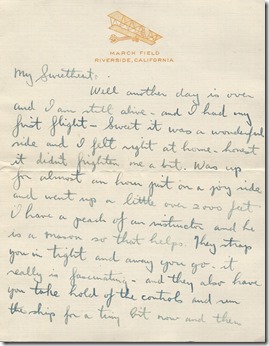 MARCH FIELD
RIVERSIDE, CALIFORNIA
My Sweetheart,
Well another day is over
and I am still alive - and I had my
first flight - Sweet it was a wonderful
ride and I felt right at home - honest
it didn't frighten me a bit. Was up
for almost an hour just on a joy ride
and went up a little over 2000 feet
I have a peach of an instructor and he
is a mason so that helps. They strap
you in tight and away you go - it
really is fascinating - and they also have
you take hold of the controls and run
the ship for a tiny bit now and then